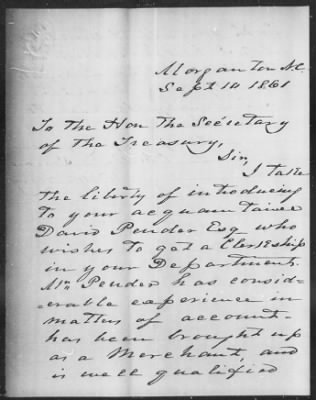 Morganton N.C.
Sept 10 1861
To The Hon The Secretary
of The Treasury,
Sir,
I take
the liberty of introducing
to your acquaintance
David Pender Esq who
wishes to get a Clerkship
in your Department.
Mr. Pender has consid-
erable experience in
matters of account-
has been brought up
as a Merchant, and
is well qualified